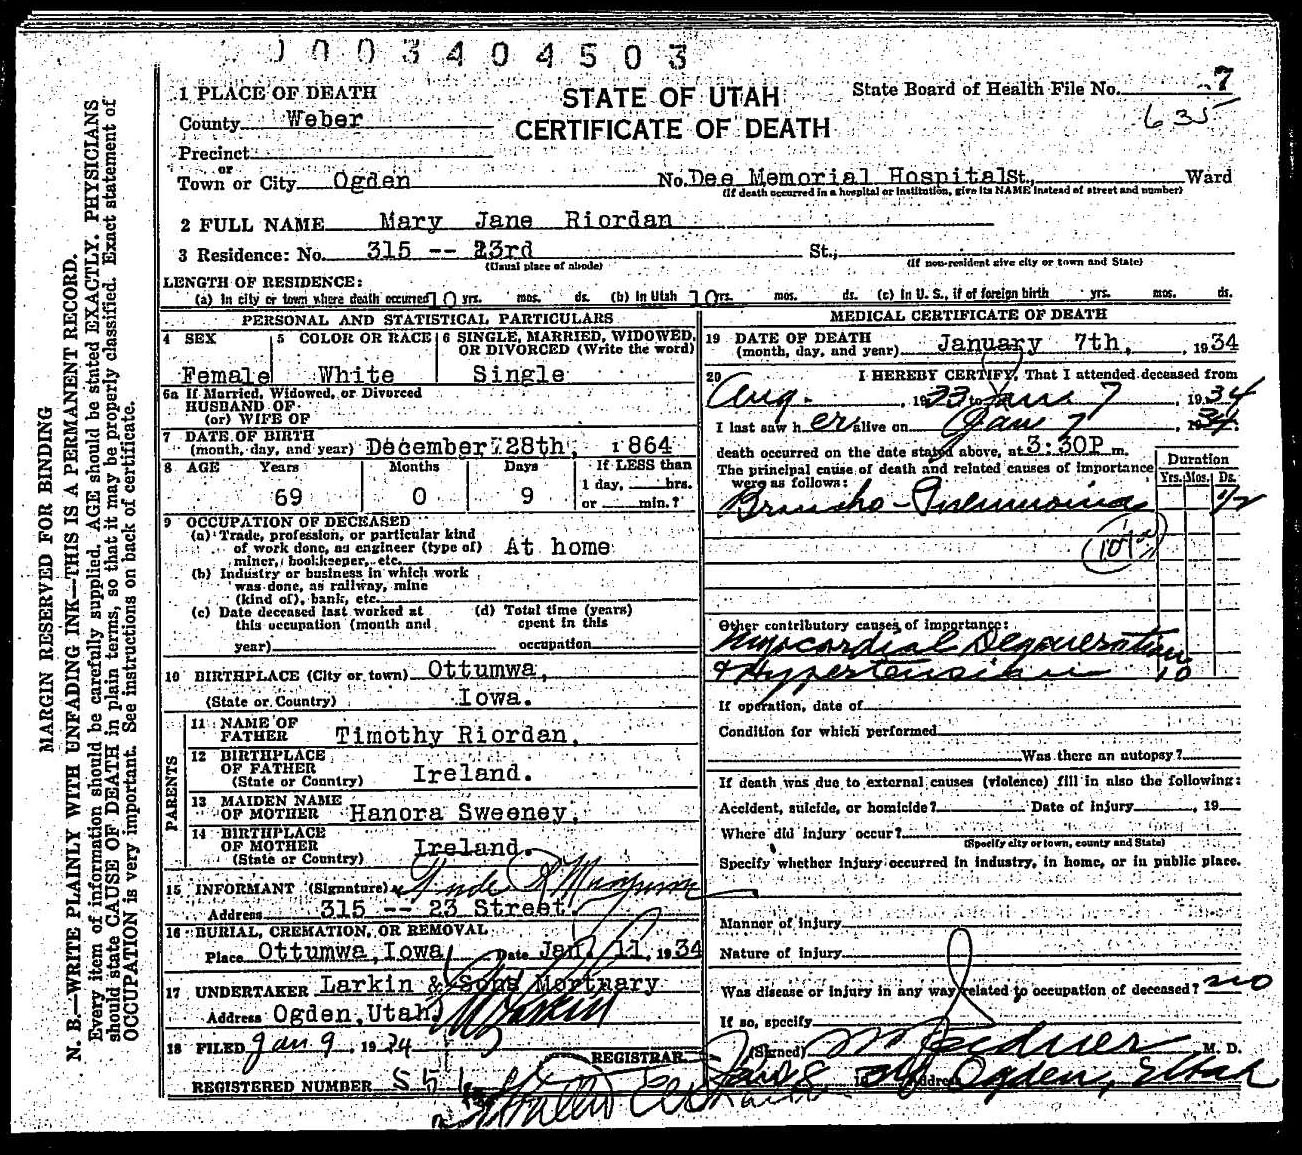 0003404503
1 PLACE OF DEATH
STATE OF UTAH
CERTIFICATE OF DEATH
State Board of Health File No. 7
635
County Weber
Precinct
or
Town or City Ogden No. Dee Memorial Hospital St., Ward
(If death occurred in a hospital or institution, give its NAME instead of street and number)
2 FULL NAME Mary Jane Riordan
3 Residence: No. 315 -- 23rd St.,
(Usual place of abode) (If non-resident give city or town and State)
LENGTH OF RESIDENCE:
(a) In city or town where death occurred 10 yrs. mos. ds. (b) In Utah 10 yrs. mos. ds. (c) In U. S., if of foreign birth yrs. mos. ds.
PERSONAL AND STATISTICAL PARTICULARS
4 SEX 5 COLOR OR RACE 6 SINGLE, MARRIED, WIDOWED, OR DIVORCED (Write the word)
Female White Single
6a If Married, Widowed, or Divorced
HUSBAND OF
(or) WIFE OF
7 DATE OF BIRTH
(month, day, and year) December 28th, 1864
8 AGE Years Months Days If LESS than
1 day, hrs.
69 0 9 or min.?
9 OCCUPATION OF DECEASED
(a) Trade, profession, or particular kind
of work done, as engineer (type of) At home
miner, bookkeeper, etc.
(b) Industry or business in which work
was done, as railway, mine
(kind of), bank, etc.
(c) Date deceased last worked at (d) Total time (years)
this occupation (month and spent in this
year) occupation
10 BIRTHPLACE (City or town) Ottumwa,
(State or Country) Iowa.
PARENTS
11 NAME OF
FATHER Timothy Riordan,
12 BIRTHPLACE
OF FATHER Ireland.
(State or Country)
13 MAIDEN NAME
OF MOTHER Hanora Sweeney,
14 BIRTHPLACE
OF MOTHER Ireland.
(State or Country)
15 INFORMANT (Signature)
Address 315 -- 23 Street.
16 BURIAL, CREMATION, OR REMOVAL
Place Ottumwa, Iowa Date Jan. 11, 1934
17 UNDERTAKER Larkin & Sons Mortuary
Address Ogden, Utah.
18 FILED Jan 9, 1934
REGISTRAR.
REGISTERED NUMBER
MEDICAL CERTIFICATE OF DEATH
19 DATE OF DEATH
(month, day, and year) January 7th, 1934
20 I HEREBY CERTIFY, That I attended deceased from
Aug. , 1933 to Jan 7 1934
I last saw her alive on Jan 7 , 1934
death occurred on the date stated above, at 3:30P m.
The principal cause of death and related causes of importance
were as follows:
Duration
Yrs. Mos. Ds.
Broncho-Pneumonia 1/2
Other contributory causes of importance:
Myocardial Degeneration
& Hypertension 10
If operation, date of
Condition for which performed
Was there an autopsy?
If death was due to external causes (violence) fill in also the following:
Accident, suicide, or homicide? Date of injury , 19
Where did injury occur?
(Specify city or town, county and State)
Specify whether injury occurred in industry, in home, or in public place.
Manner of injury
Nature of injury
Was disease or injury in any way related to occupation of deceased? no
If so, specify
(Signed) M. D.
Address Ogden, Utah
MARGIN RESERVED FOR BINDING
N. B.—WRITE PLAINLY WITH UNFADING INK—THIS IS A PERMANENT RECORD.
Every item of information should be carefully supplied. AGE should be stated EXACTLY. PHYSICIANS
should state CAUSE OF DEATH in plain terms, so that it may be properly classified. Exact statement of
OCCUPATION is very important. See instructions on back of certificate.